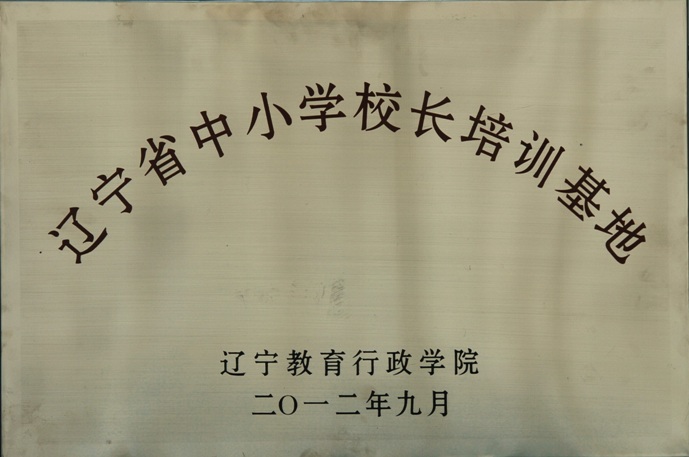 辽宁省中小学校长培训基地
辽宁教育行政学院
二〇一二年九月